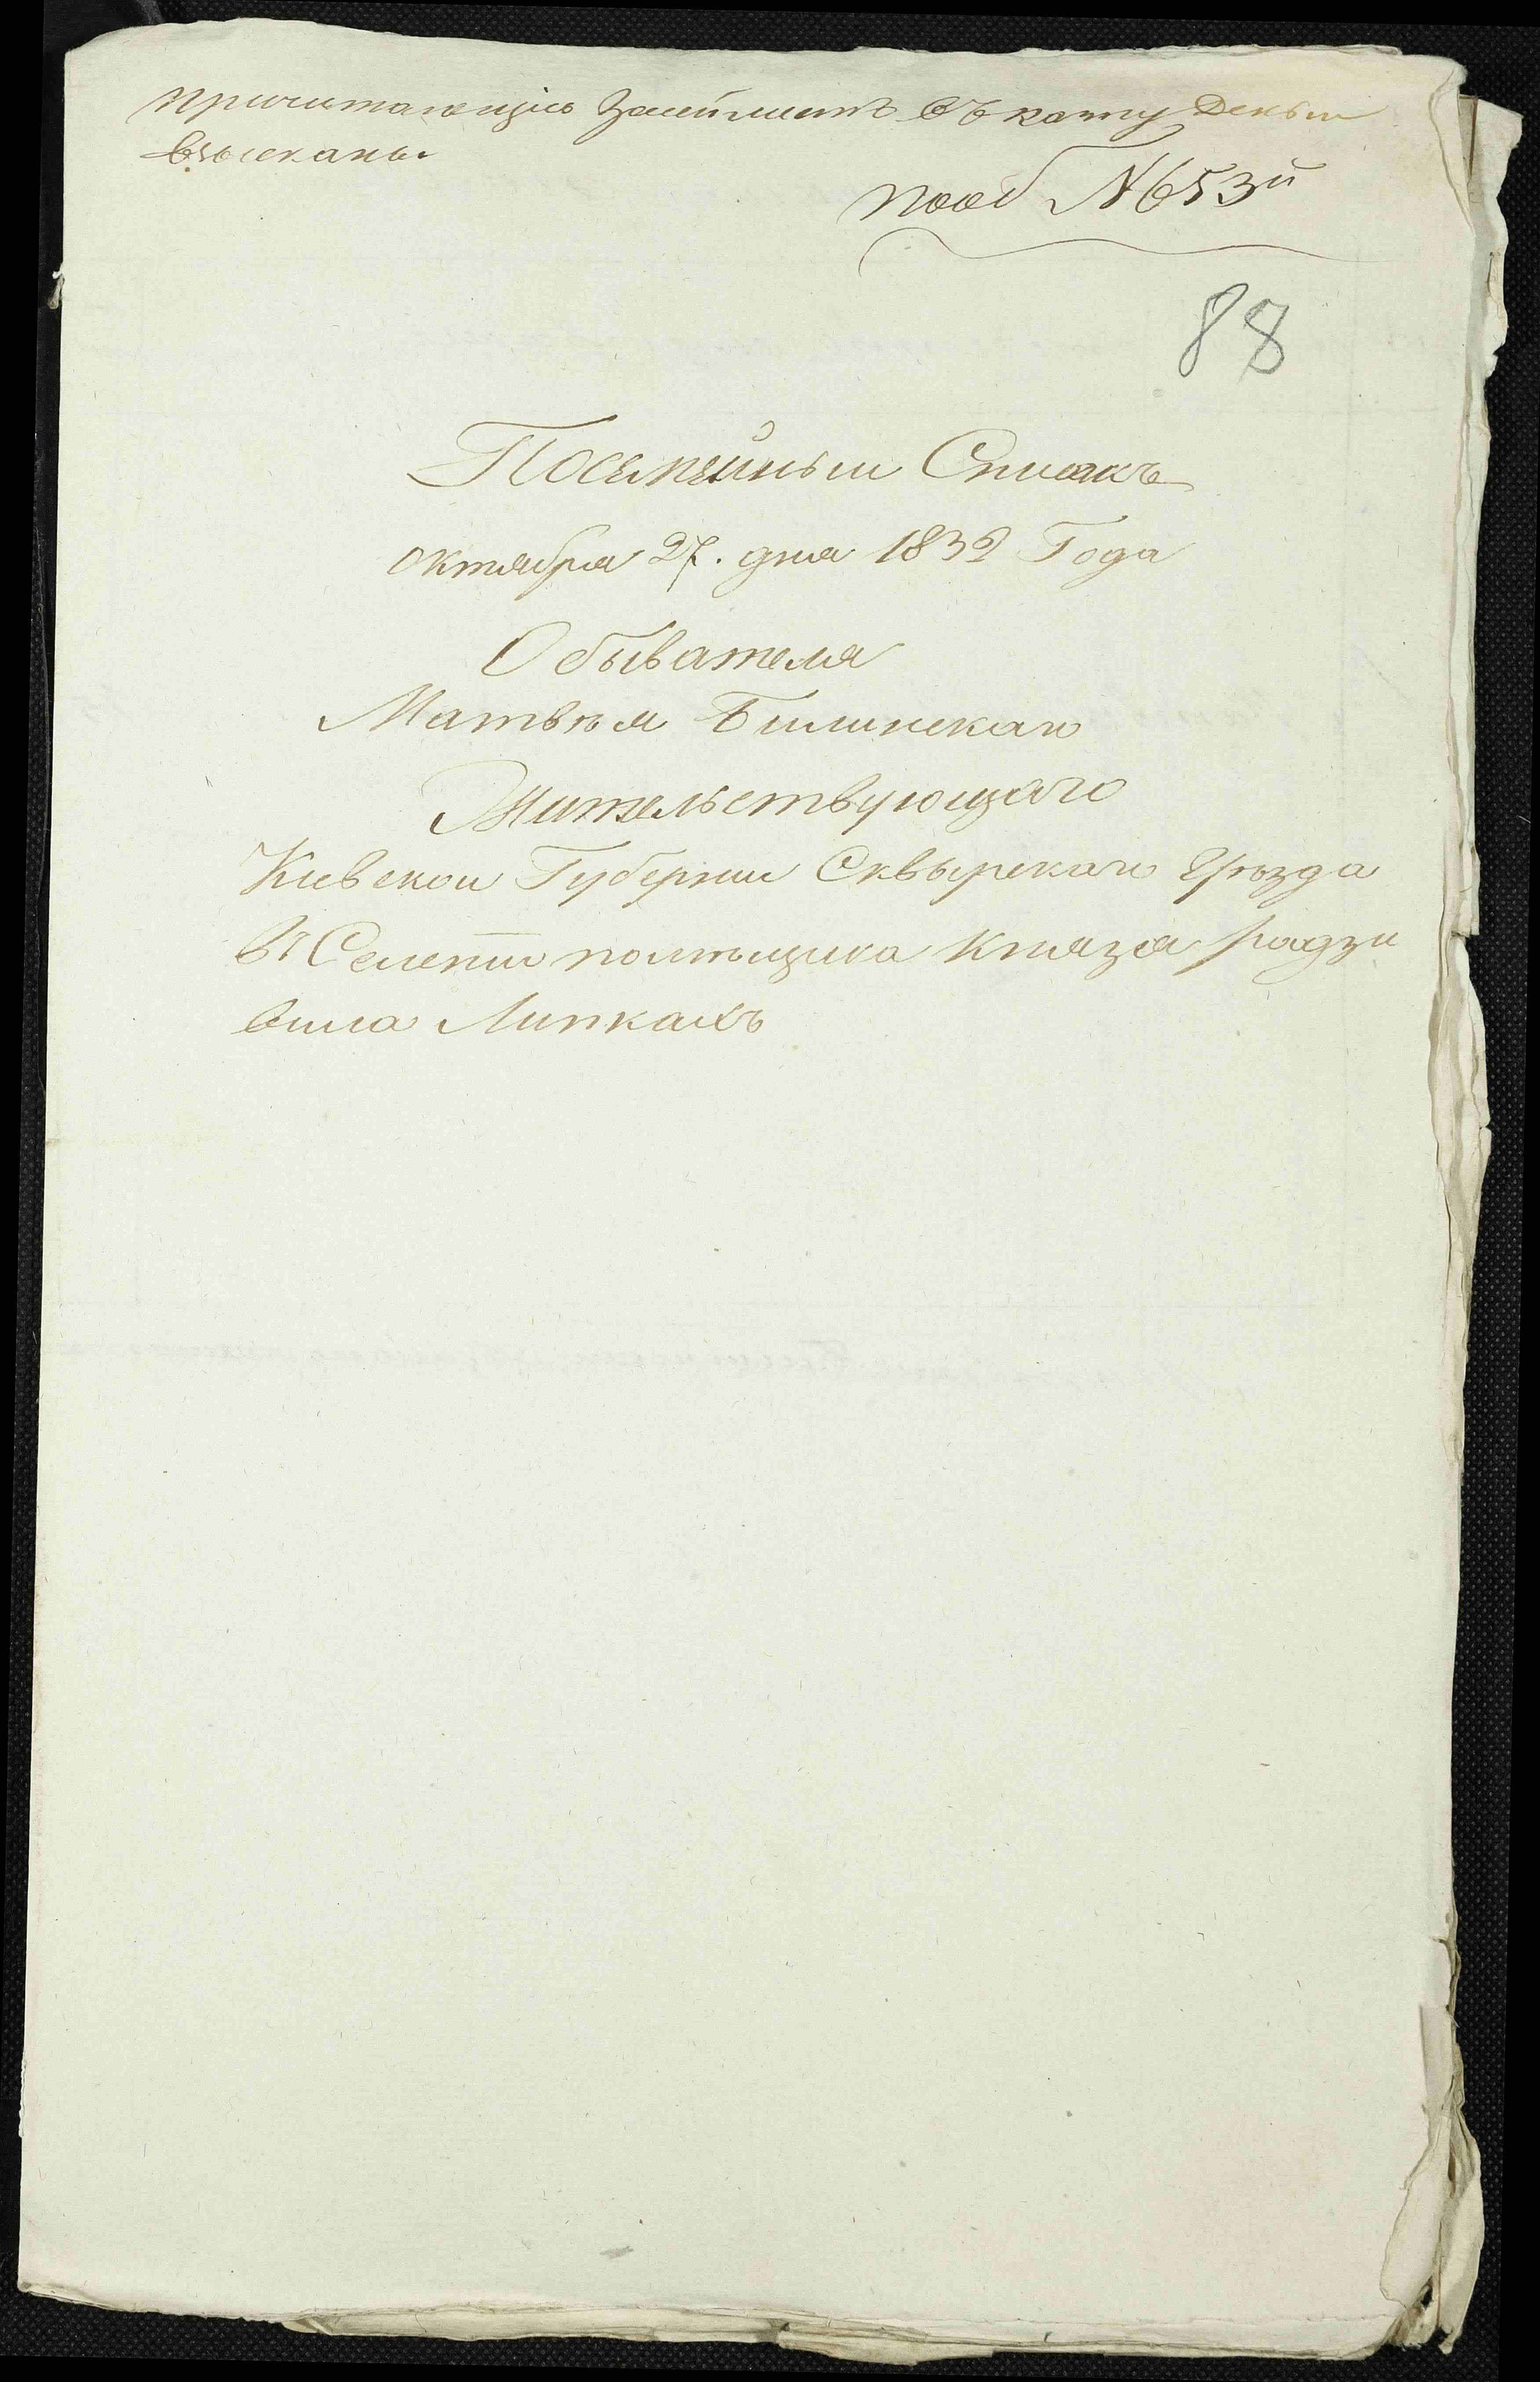 причитающіесь въ казну деньги
взысканы
пооб №653й
88
Посемѣйный Списокъ
октября 27. дня 1832 Года
Обывателя
Матвѣя Билинскаго
Жительствующаго
Кіевской Губерніи Сквырскаго уѣзда
въ Селеніи помѣщика Князя радзи
вила Липкахъ